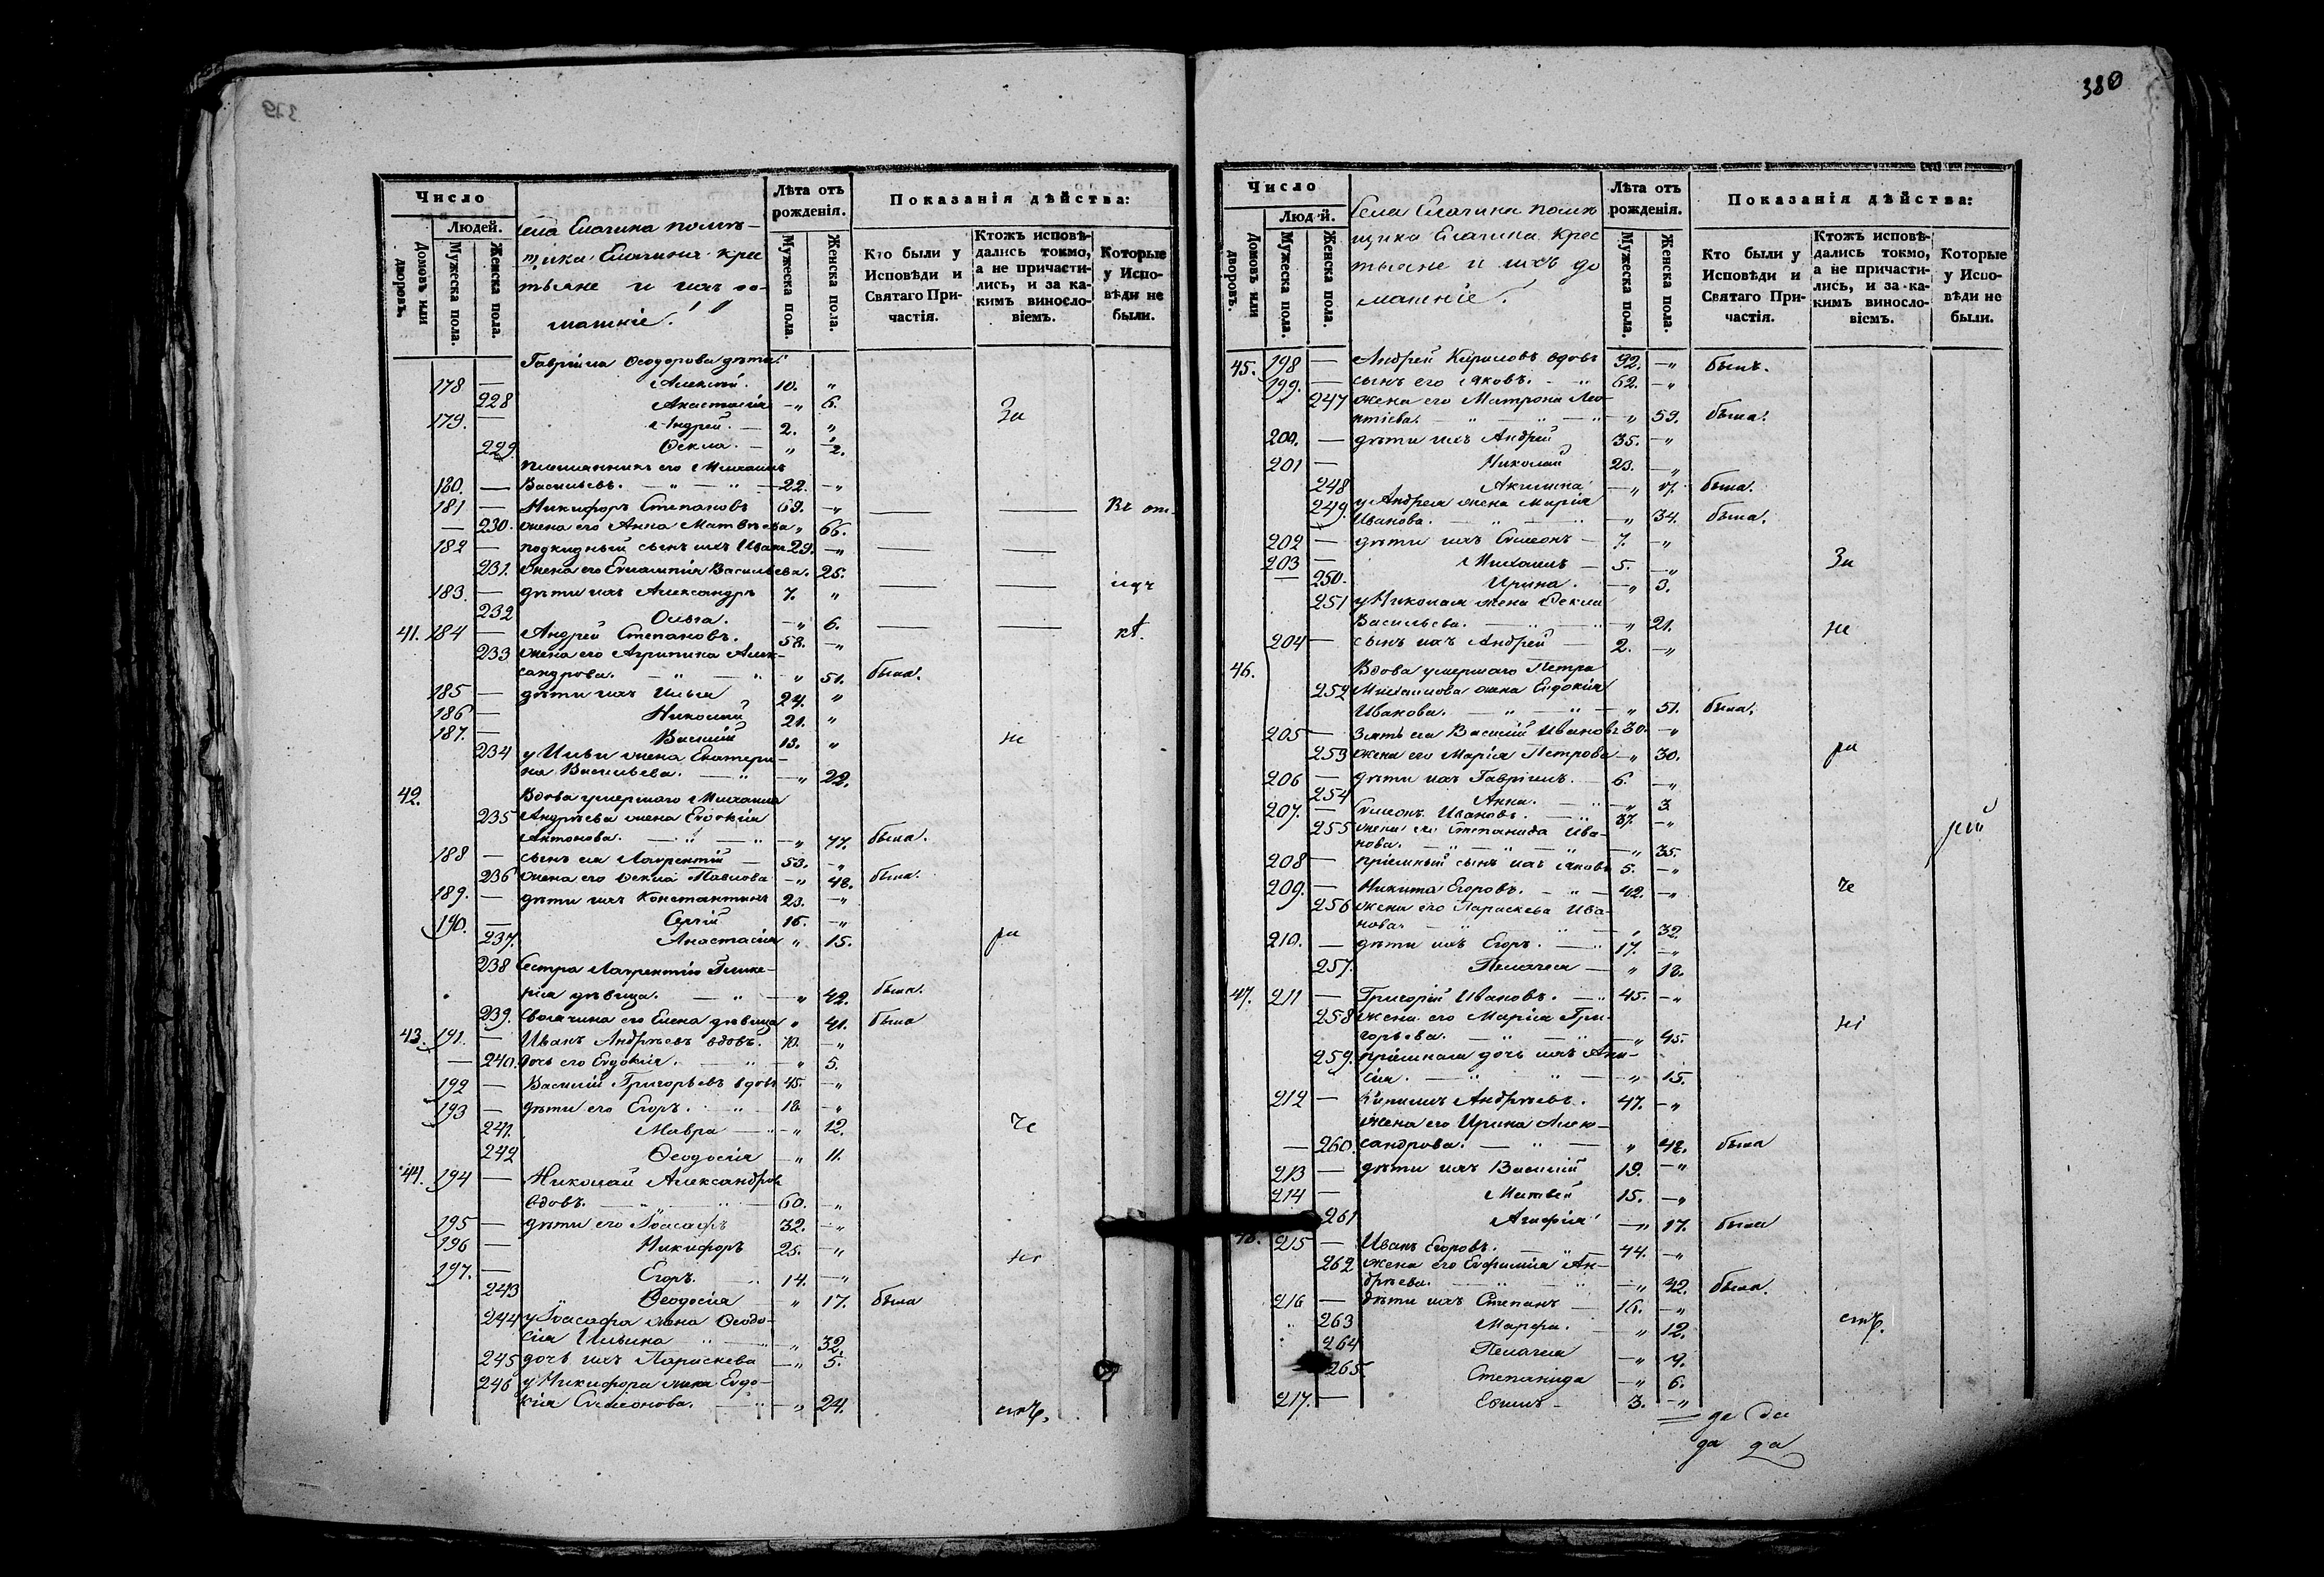 379
Число
Людей.
Домовъ или дворовъ.
Мужеска пола.
Женска пола.
Села Елагина помѣ-
щика Елагина кре
стьяне и ихъ до-
машніе.
Лѣта отъ рожденія.
Мужеска пола.
Женска пола.
Показанія дѣйства:
Кто были у Исповѣди и Святаго Причастія.
Ктожъ исповѣдались токмо, а не причастились, и за какимъ винословіемъ.
Которые у Исповѣди не были.
Гавріила Ѳеодорова дѣти:
178 — Алексѣй. 10. „
228 Анастасія —„ 6. За
179. — Андрей. — 2. „
229. Ѳекла. — „ 2.
племянникъ его Михаилъ
180. — Васильевъ. — „ — „ — 22. —„
181 — Никифоръ Степановъ 69. —„ — — Въ от-
— 230. жена его Анна Матвѣева „ 66.
182 — подкидный сынъ ихъ Иванъ 29. —„ — —
231. жена его Евлампія Васильева. 25.
183. — дѣти ихъ Александръ 7. „ — —
232 Ольга. —„ 6. — —
41. 184 — Андрей Степановъ. 58. —„
233 жена его Агрипина Алек-
сандрова. — „ — „ — „ 51. была.
185 — дѣти ихъ Илья 24. „
186 — Николай 21. „
187. — Василій 13. „ не
234 у Ильи жена Екатери-
на Васильева. — „ —„ 22.
42. Вдова умершаго Михаила
235 Андрѣева жена Евдокія
Антонова. — „ — „ —„ 77. была.
188 — сынъ ея Лаврентій — 53. —„
236 жена его Ѳекла Павлова —„ 48. была.
189. — дѣти ихъ Константинъ 23. —„
190. — Сергій 16. —„
237. Анастасія „ 15. ра
238 Сестра Лаврентію Глике-
рія дѣвица. — „ —„ 42. была.
239. Своячина его Елена дѣвица „ 41. была
43. 191. — Иванъ Андрѣевъ вдовъ. 70. —„
— 240. дочь его Евдокія. — „ —„ 5.
192 — Василій Григорьевъ вдовъ 45. —„
193 — дѣти его Егоръ. — „ 18. —„
241. Мавра — „ —„ 12. че
242 Ѳеодосія —„ 11.
44. 194 — Николай Александровъ
вдовъ. — „ — „ — 60. —„
195 — дѣти его Іоасафъ 32. —„
196 — Никифоръ 25. —„
197. — Егоръ. — „ 14. —„
243 Ѳеодосія „ 17. была
244 у Іоасафа жена Ѳеодо-
сія Ильина — „ — „ 32.
245 дочь ихъ Параскева —„ 5.
246 у Никифора жена Евдо-
кія Симеонова. — „ —„ 24.
380
Число
Людей.
Домовъ или дворовъ.
Мужеска пола.
Женска пола.
Села Елагина помѣ
щика Елагина крес
тьяне и ихъ до
машніе.
Лѣта отъ рожденія.
Мужеска пола.
Женска пола.
Показанія дѣйства:
Кто были у Исповѣди и Святаго Причастія.
Ктожъ исповѣдались токмо, а не причастились, и за какимъ винословіемъ.
Которые у Исповѣди не были.
45. 198 — Андрей Кириловъ вдовъ 92. —„ былъ.
199. — сынъ его Яковъ. — „ 62. —„
247 жена его Матрона Лео-
нтіева. — „ — „ — „ 59. была.
200. — дѣти ихъ Андрей 35. —„
201 — Николай 23. —„
248 Акилина —„ 17. была.
249. у Андрея жена Марія
Иванова. — „ — „ —„ 34. была.
202 — дѣти ихъ Симеонъ — 7. —„
203 — Михаилъ — 5. —„ За
— 250. Ирина. — „ 3.
251 у Николая жена Ѳекла
Васильева. — „ — „ —„ 21. не
204 — сынъ ихъ Андрей — 2. —„
46. Вдова умершаго Петра
252 Михаилова жена Евдокія
Иванова. — „ — „ — „ 51. была.
205 — Зять ея Василій Ивановъ 30. —„
253 жена его Марія Петрова —„ 30. ра
206 — дѣти ихъ Гавріилъ. — 6. —„
254 Анна. — „ —„ 3.
207. — Симеонъ Ивановъ. — „ 37. —„
255 жена его Степанида Ива-
нова. — „ — „ — „ —„ 35.
208 — пріемный сынъ ихъ Яковъ 5. —„
209. — Никита Егоровъ. — „ — 42. —„ че
256 жена его Параскева Ива-
нова. — „ — „ — „ 32.
210. — дѣти ихъ Егоръ. — „ 17. —„
257. Пелагея — „ 12.
47. 211 — Григорій Ивановъ. — „ 45. —„
258 жена его Марія Гри-
горьева. — „ — „ —„ 45.
259. пріемная дочь ихъ Ана-
сія. — „ — „ — „ 15.
212 — Кирилъ Андрѣевъ. 47. —„
жена его Ирина Алек-
— 260. сандрова. — „ — „ 48. была
213 — дѣти ихъ Василій 19. —„
214 — Матвей 15. —„
261 Агафія —„ 17. была
48. 215 — Иванъ Егоровъ. — „ — 44. —„
262 жена его Евфимія Ан-
дрѣева. — „ — „ —„ 42. была.
216 — дѣти ихъ Степанъ — 16. —„
263 Марфа. — „ 12.
264 Пелагея —„ 7.
265. Степанида —„ 6.
217. — Евѳимъ — 3. —„